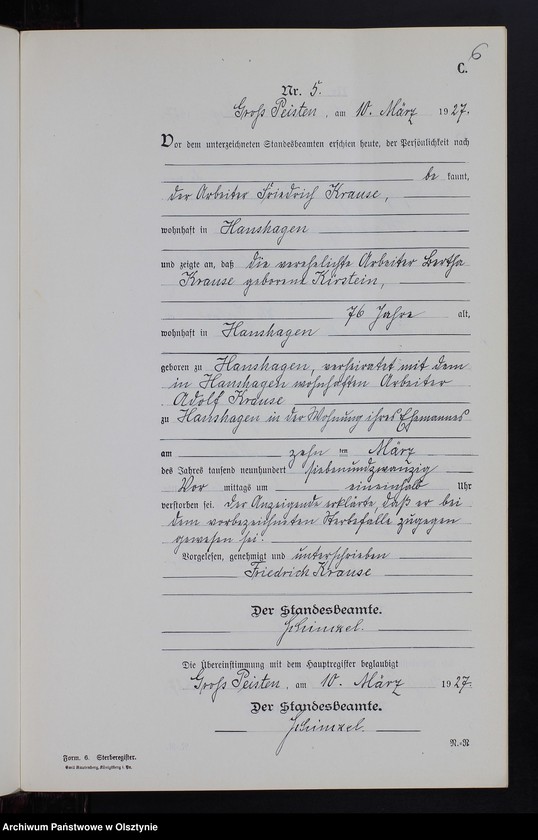 6
C.
Nr. 5.
Groß Peisten, am 10. März 1927.
Vor dem unterzeichneten Standesbeamten erschien heute, der Persönlichkeit nach
be kannt,
der Arbeiter Friedrich Krause,
wohnhaft in Hanshagen
und zeigte an, daß die verehelichte Arbeiter Bertha
Krause geborene Kirstein,
76 Jahre alt,
wohnhaft in Hanshagen
geboren zu Hanshagen, verheiratet mit dem
in Hanshagen wohnhaften Arbeiter
Adolf Krause
zu Hanshagen in der Wohnung ihres Ehemannes
am zehn ten März
des Jahres tausend neunhundert siebenundzwanzig
Vor mittags um eineinhalb Uhr
verstorben sei. Der Anzeigende erklärte, daß er bei
dem vorbezeichneten Sterbefalle zugegen
gewesen sei.
Vorgelesen, genehmigt und unterschrieben
Friedrich Krause
Der Standesbeamte.
Schinkel.
Die Übereinstimmung mit dem Hauptregister beglaubigt
Groß Peisten, am 10. März 1927.
Der Standesbeamte.
Schinkel.
R.-R
Form. 6. Sterberegister.
Emil Rautenberg, Königsberg i. Pr.
Archiwum Państwowe w Olsztynie